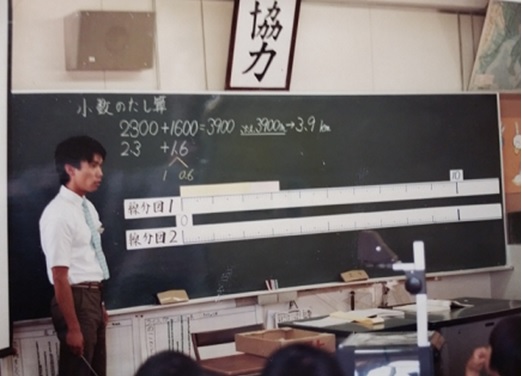 協力
小数のたし算
2300+1600=3900 3900m→3.9km
2.3 +1.6
1 0.6
10
線分図1
0
線分図2